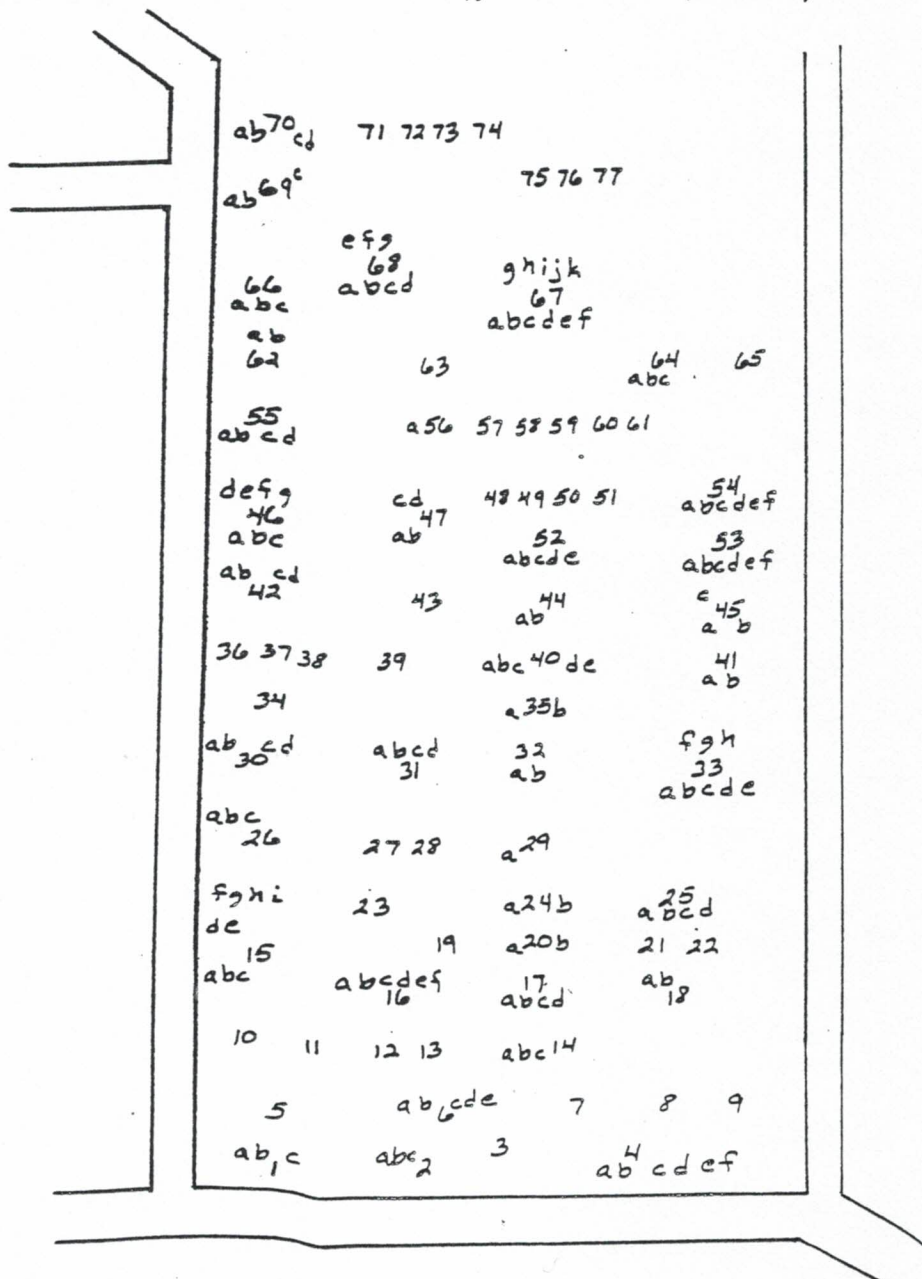 ab70cd 71 72 73 74
ab69c 75 76 77
efg
68
abcd
ghijk
67
abcdef
66
abc
ab
62 63 64 65
abc
55
abcd a56 57 58 59 60 61
defg
46
abc
cd
47
ab
48 49 50 51
54
abcdef
52
abcde
53
abcdef
ab cd
42
43
44
ab
c
45
a b
36 37 38 39 abc40de 41
ab
34 a35b
ab30cd
abcd
31
32
ab
fgh
33
abcde
abc
26 27 28 a29
fghi
de
15
abc
23 a24b 25
abcd
19 a20b 21 22
abcdef
16
17
abcd
ab
18
10 11 12 13 abc14
5 ab6cde 7 8 9
ab1c abc2 3 ab4cdef